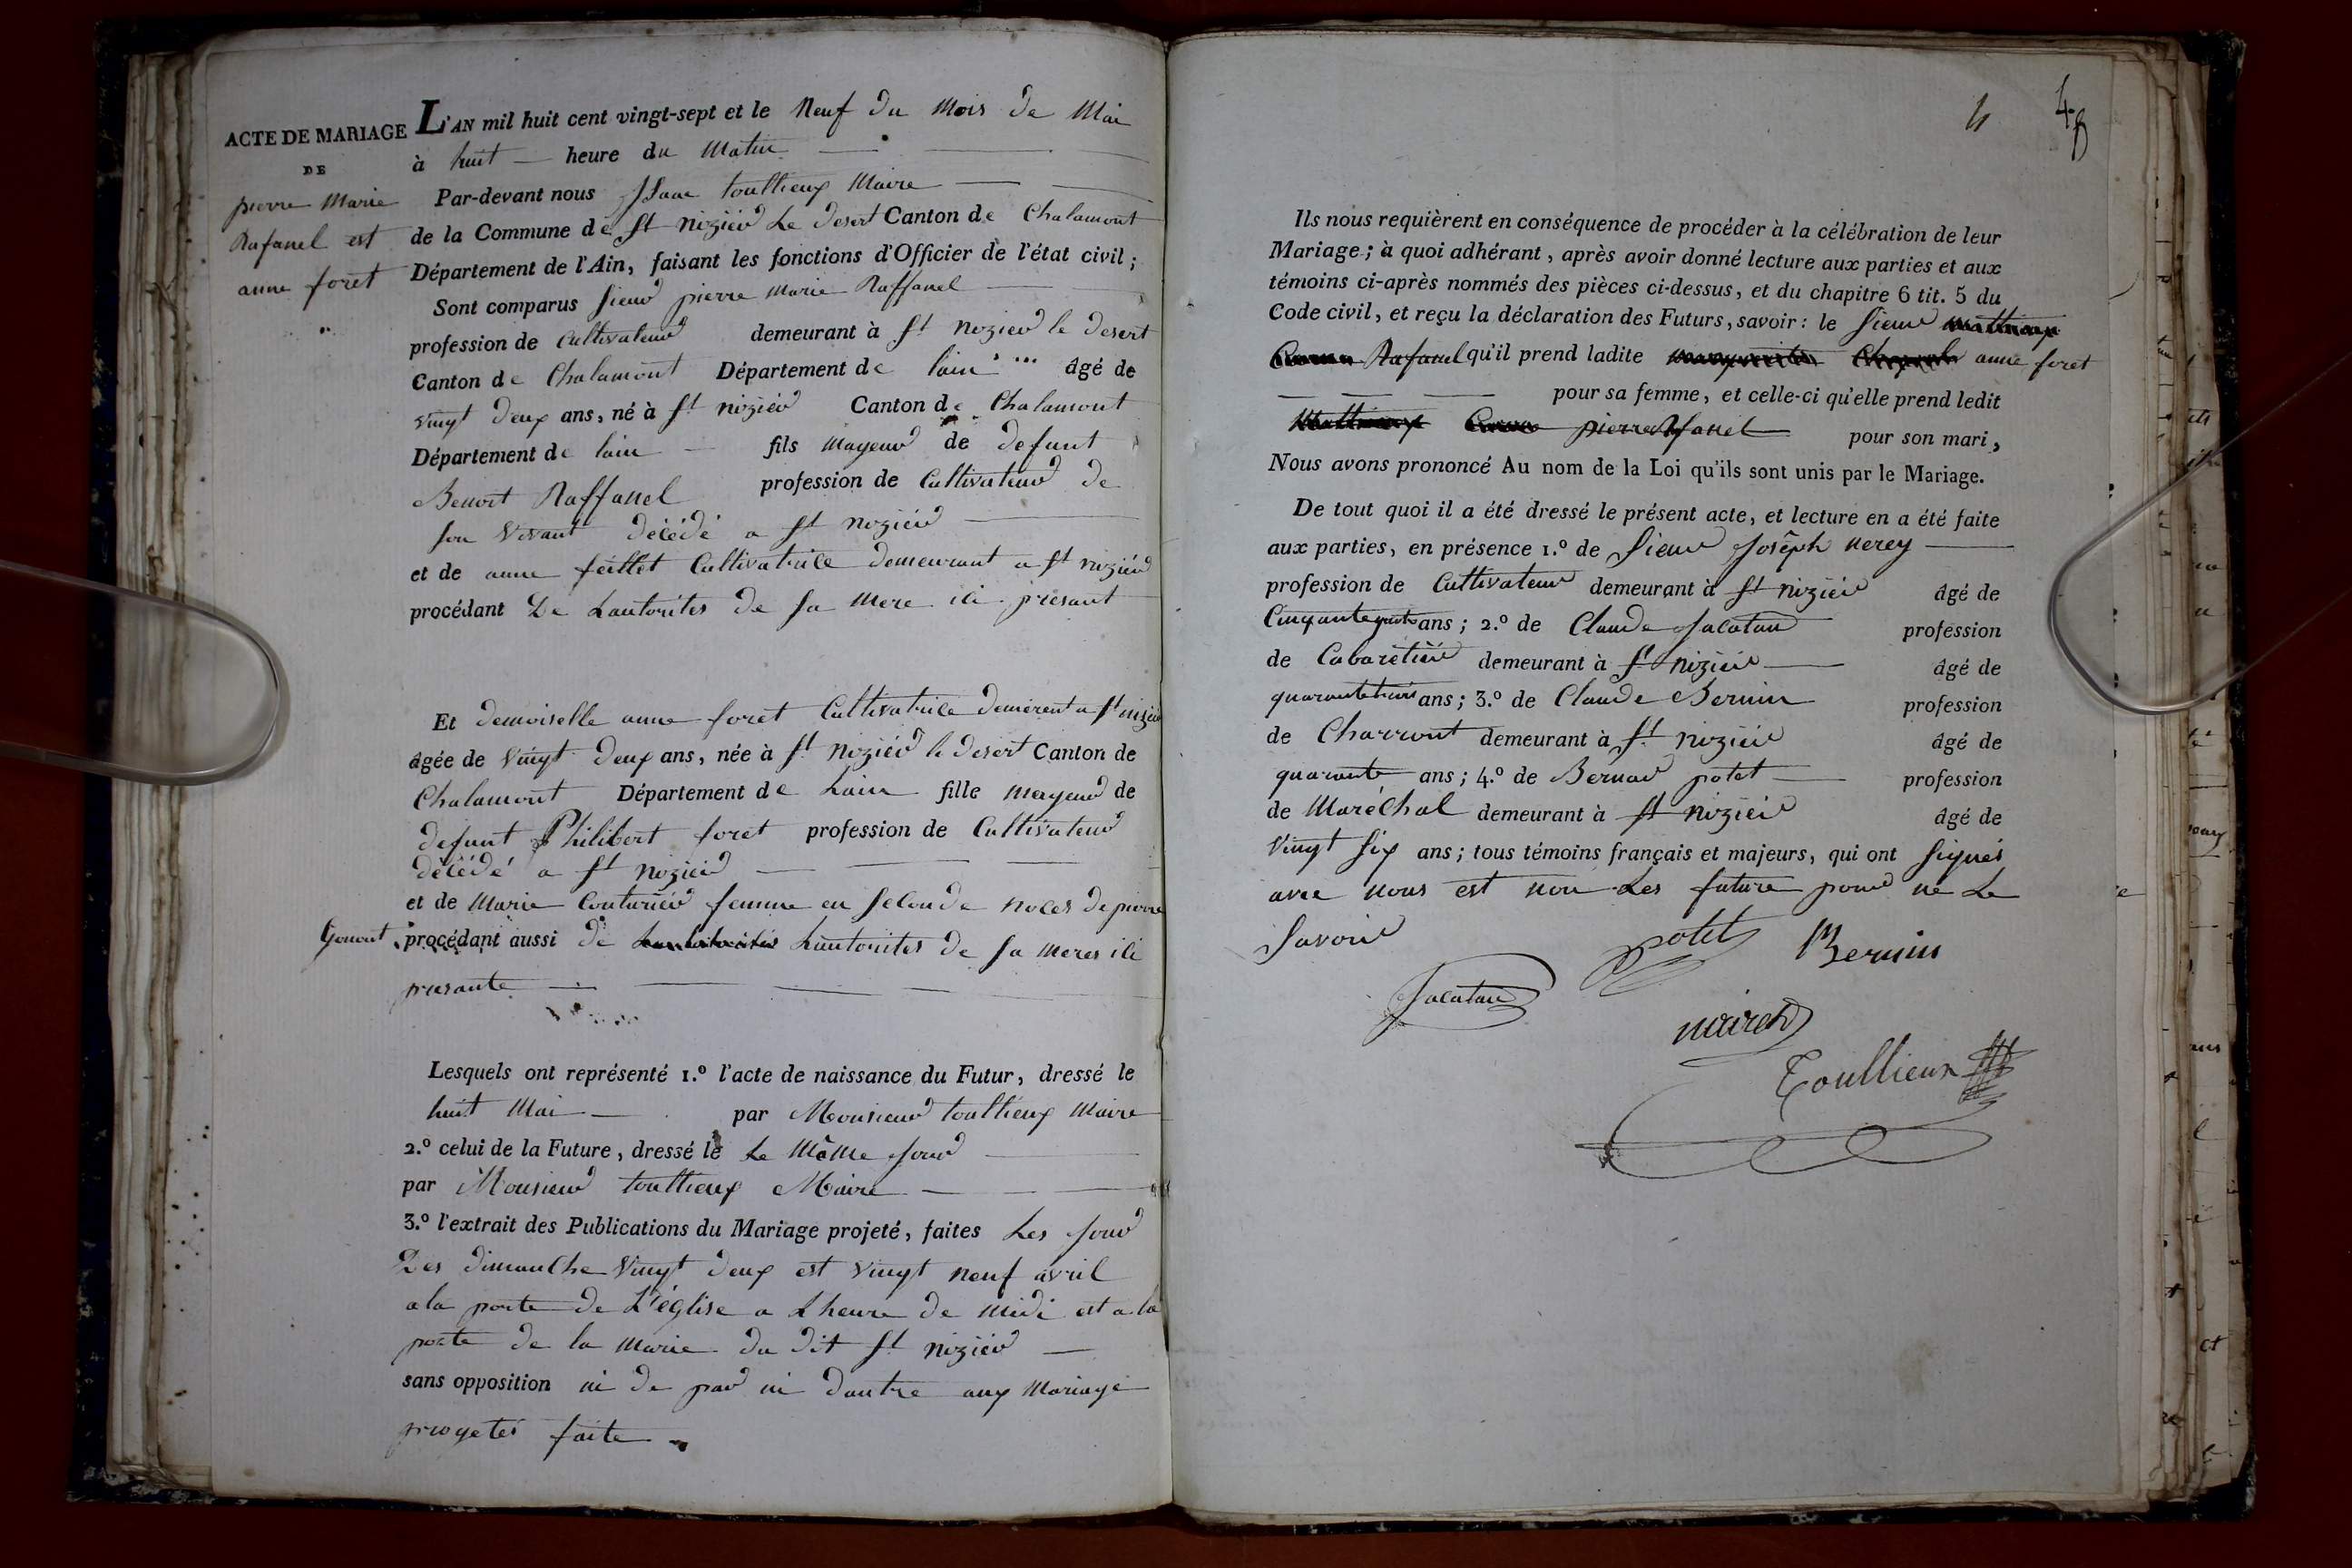 ACTE DE MARIAGE
DE
pierre Marie
Rafanel est
anne foret
L'AN mil huit cent vingt-sept et le Neuf du Mois de Mai
à huit — heure du Matin —
Par-devant nous Isaac toullieux Maire —
de la Commune de St nizier Le desert Canton de Chalamont
Département de l'Ain, faisant les fonctions d'Officier de l'état civil ;
Sont comparus Sieur pierre Marie Raffanel —
profession de Cultivateur demeurant à St nozier le desert
Canton de Chalamont Département de lain âgé de
vingt deux ans, né à St nizier Canton de Chalamont
Département de lain — fils mayeur de defunt
Benoit Raffanel profession de Cultivateur de
son vivant décédé a St nozier —
et de anne feillet Cultivatrice demeurant a St nizier
procédant De Lautorites de sa Mere ici présant
Et demoiselle anne foret Cultivatrice demerent a St nizier
âgée de vingt deux ans, née à St nozier le desert Canton de
Chalamont Département de Lain fille mayeur de
defunt Philibert foret profession de Cultivateur
décédé a St nozier —
et de Marie Couturier femme en seconde noces de pierre
Gonout procédant aussi de Lautorites de sa meres ici
presante —
Lesquels ont représenté 1.º l'acte de naissance du Futur, dressé le
huit Mai — par Monsieur toullieux Maire
2.º celui de la Future, dressé le Le Même jour —
par Monsieur toullieux Maire —
3.º l'extrait des Publications du Mariage projeté, faites Les jour
Des dimanche vingt deux est vingt neuf avril
a la porte de L'église a Lheure de midi est a la
porte de la Marie du dit St nizier —
sans opposition ni de par ni dautre aux Mariage
progetés faite
4 48
Ils nous requièrent en conséquence de procéder à la célébration de leur
Mariage ; à quoi adhérant, après avoir donné lecture aux parties et aux
témoins ci-après nommés des pièces ci-dessus, et du chapitre 6 tit. 5 du
Code civil, et reçu la déclaration des Futurs, savoir : le Sieur
Rafanel qu'il prend ladite anne foret
— pour sa femme, et celle-ci qu'elle prend ledit
pierre Rafanel pour son mari,
Nous avons prononcé Au nom de la Loi qu'ils sont unis par le Mariage.
De tout quoi il a été dressé le présent acte, et lecture en a été faite
aux parties, en présence 1.º de Sieur Joseph nerey —
profession de Cultivateur demeurant à St nizier âgé de
Cinquante ans ; 2.º de Claude Jacatau profession
de Cabarétier demeurant à St nizier — âgé de
quarante trois ans ; 3.º de Claude Bernin profession
de Charront demeurant à St nizier âgé de
quarante ans ; 4.º de Bernar potet — profession
de Maréchal demeurant à St nizier âgé de
vingt six ans ; tous témoins français et majeurs, qui ont signés
avec nous est non Les future pour ne Le
Savoir
potet Bernin
Jacatau
nairet
Toullieux